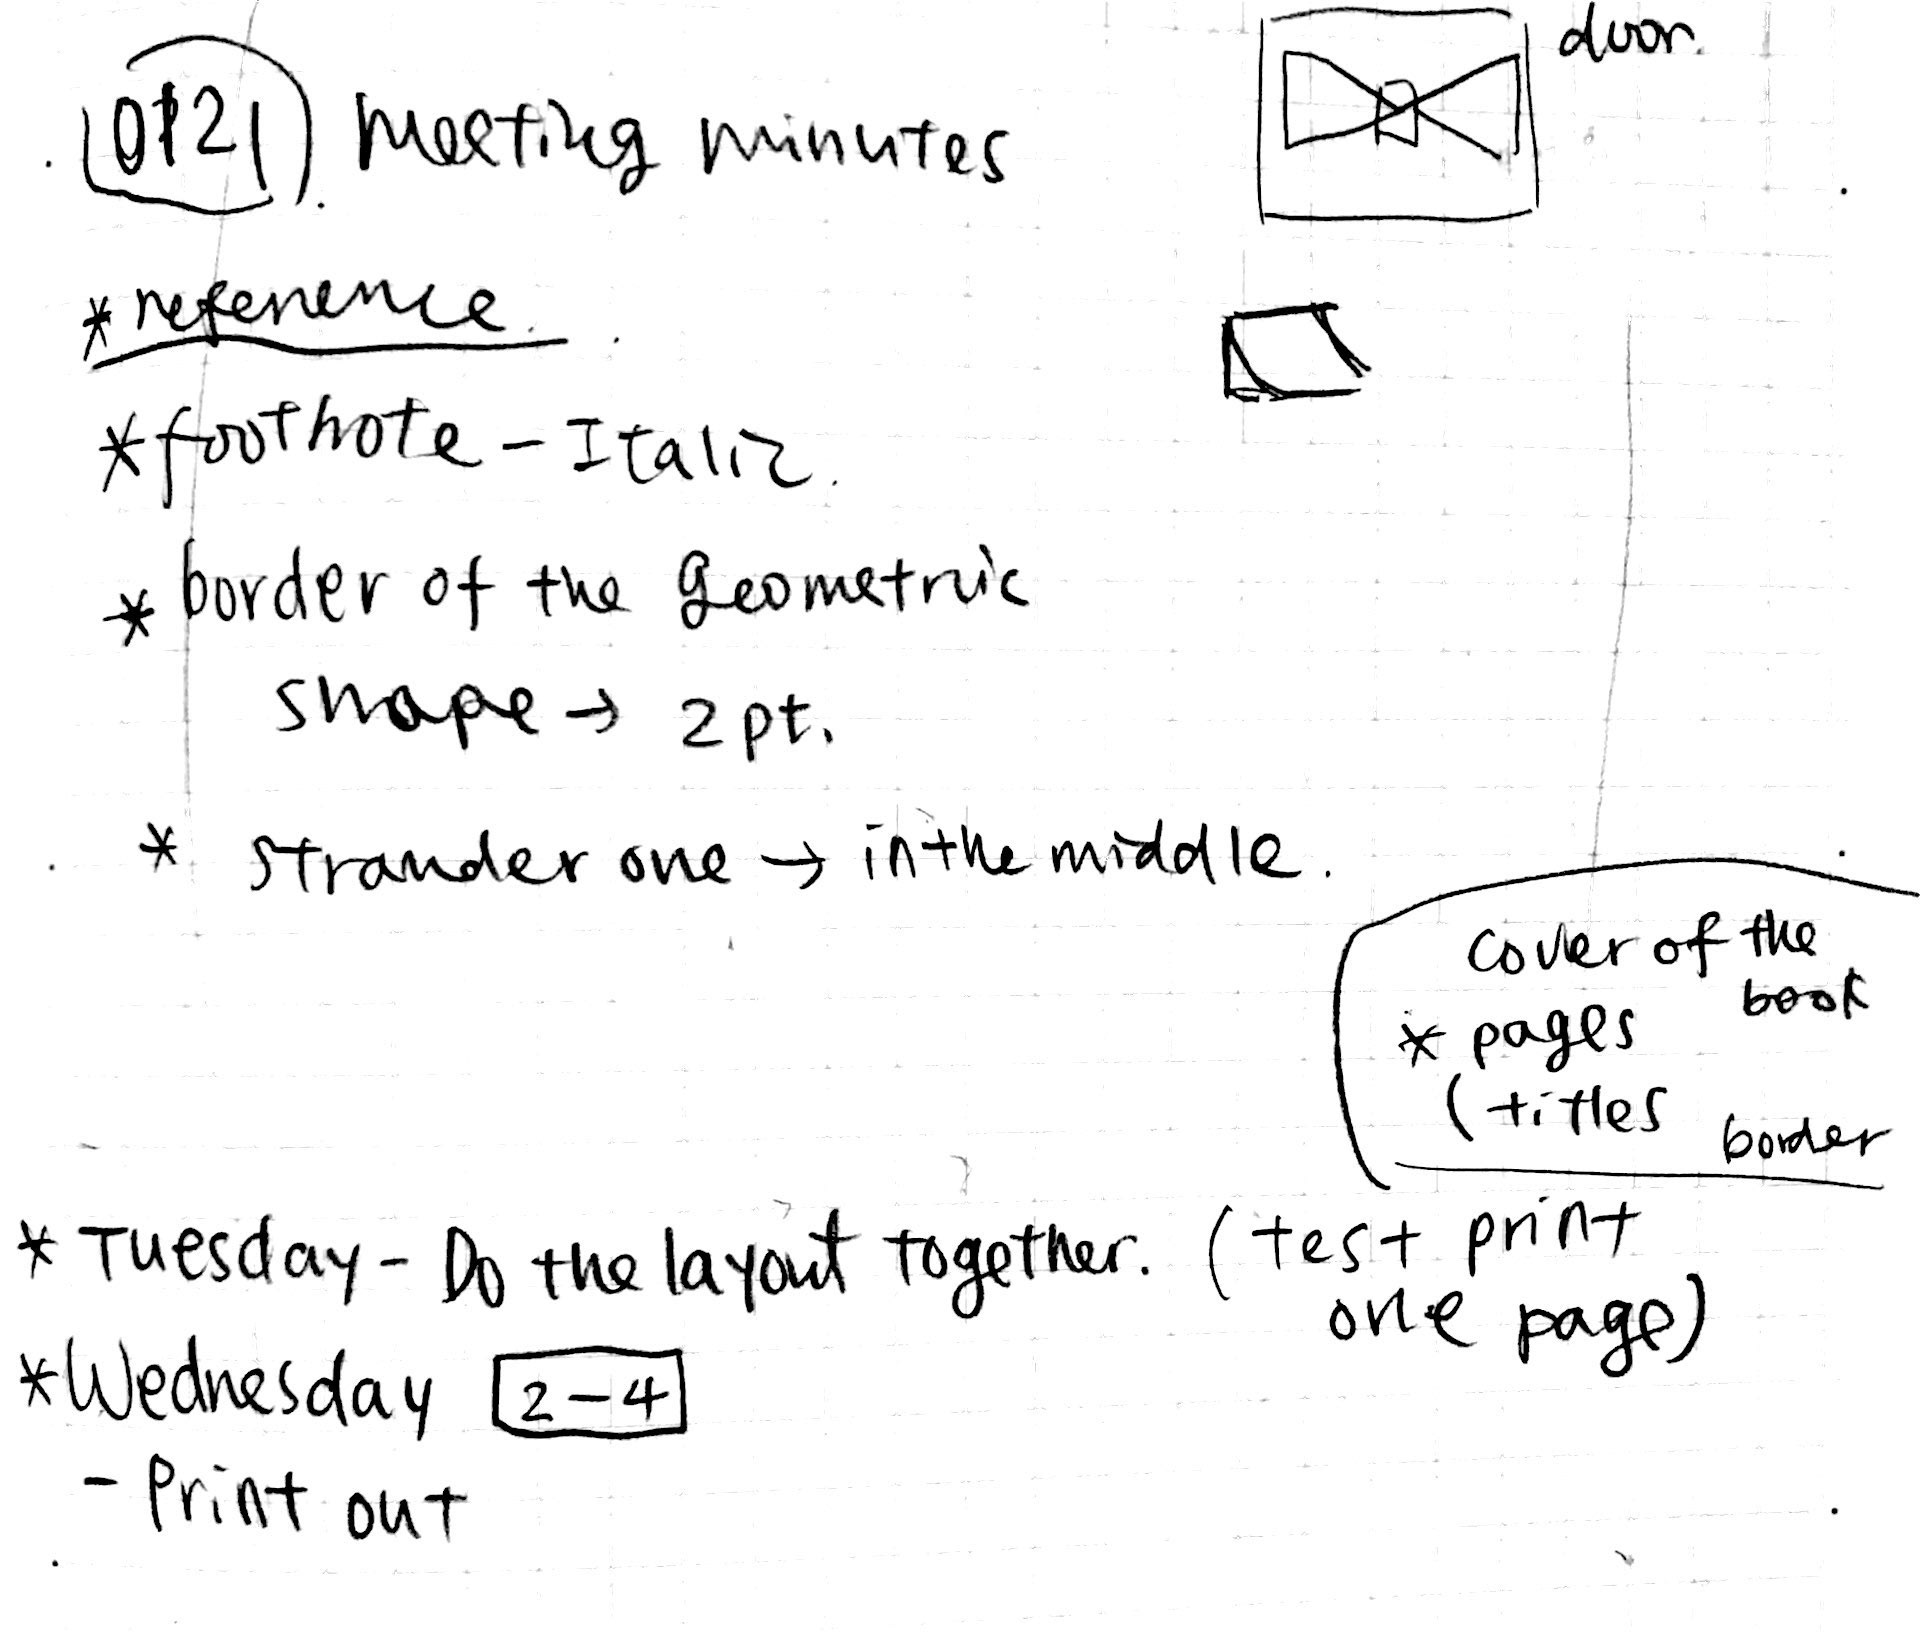 0121 meeting minutes
door.
* reference.
* footnote - Italic.
* border of the geometric
shape → 2 pt.
* strander one → in the middle.
cover of the
book
* pages
(titles
border
* Tuesday - Do the layout together. (test print
one page)
* Wednesday 2-4
- Print out